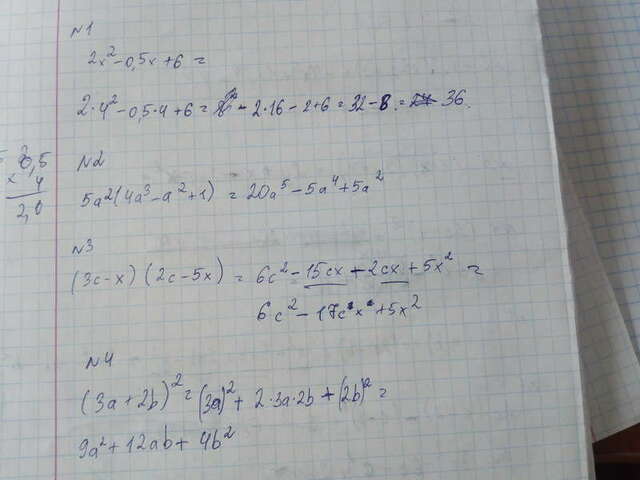 N1
2x²-0,5x+6=
2·4²-0,5·4+6= - 2·16-2+6=32-8.= 36.
N2
0,5
× 4
2,0
5a²(4a³-a²+1) = 20a⁵-5a⁴+5a²
N3
(3c-x)(2c-5x) = 6c²-15cx-2cx+5x² =
6c²-17cx+5x²
N4
(3a+2b)²=(3a)²+2·3a·2b+(2b)²=
9a²+12ab+4b²